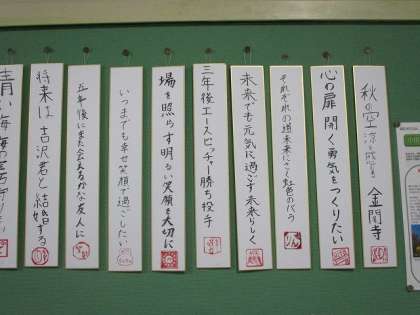 秋の空涼を感じる金閣寺
心の扉開く勇気をつくりたい
それぞれの道未来にさく虹色のバラ
未来でも元気に過ごす未来らしく
三年後エースピッチャー勝ち投手
場を照らす明るい笑顔を大切に
いつまでも幸せ笑顔で過ごしたい
五年後にまた会えるかな友人に
将来は吉沢君と結婚する
青い海